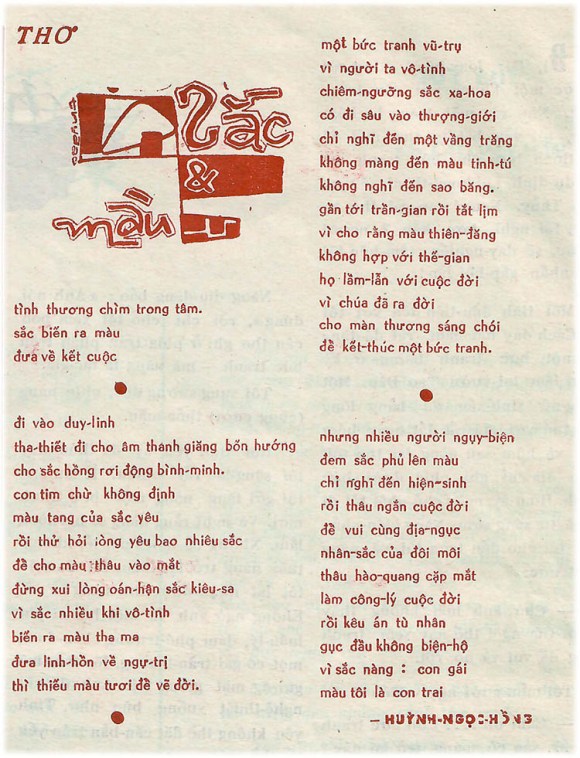 THƠ
Sắc
&
màu
tình thương chìm trong tâm.
sắc biến ra màu
đưa về kết cuộc
đi vào duy-linh
tha-thiết đi cho âm thanh giăng bốn hướng
cho sắc hồng rơi động bình-minh.
con tim chử không định
màu tang của sắc yêu
rồi thử hỏi lòng yêu bao nhiêu sắc
để cho màu thâu vào mắt
đừng xui lòng oán-hận sắc kiêu-sa
vì sắc nhiều khi vô-tình
biến ra màu tha ma
đưa linh-hồn về ngự-trị
thì thiếu màu tươi để về đời.
một bức tranh vũ-trụ
vì người ta vô-tình
chiêm-ngưỡng sắc xa-hoa
có đi sâu vào thượng-giới
chỉ nghĩ đến một vầng trăng
không màng đến màu tinh-tú
không nghĩ đến sao băng.
gần tới trần-gian rồi tắt lịm
vì cho rằng màu thiên-đàng
không hợp với thế-gian
họ lầm-lẫn với cuộc đời
vì chúa đã ra đời
cho màn thương sáng chói
để kết-thúc một bức tranh.
nhưng nhiều người ngụy-biện
đem sắc phủ lên màu
chỉ nghĩ đến hiện-sinh
rồi thâu ngắn cuộc đời
để vui cùng địa-ngục
nhân-sắc của đôi môi
thâu hào-quang cặp mắt
làm công-lý cuộc đời
rồi kêu án tù nhân
gục đầu không biện-hộ
vì sắc nàng : con gái
màu tôi là con trai
— HUỲNH-NGỌC-HỒNG